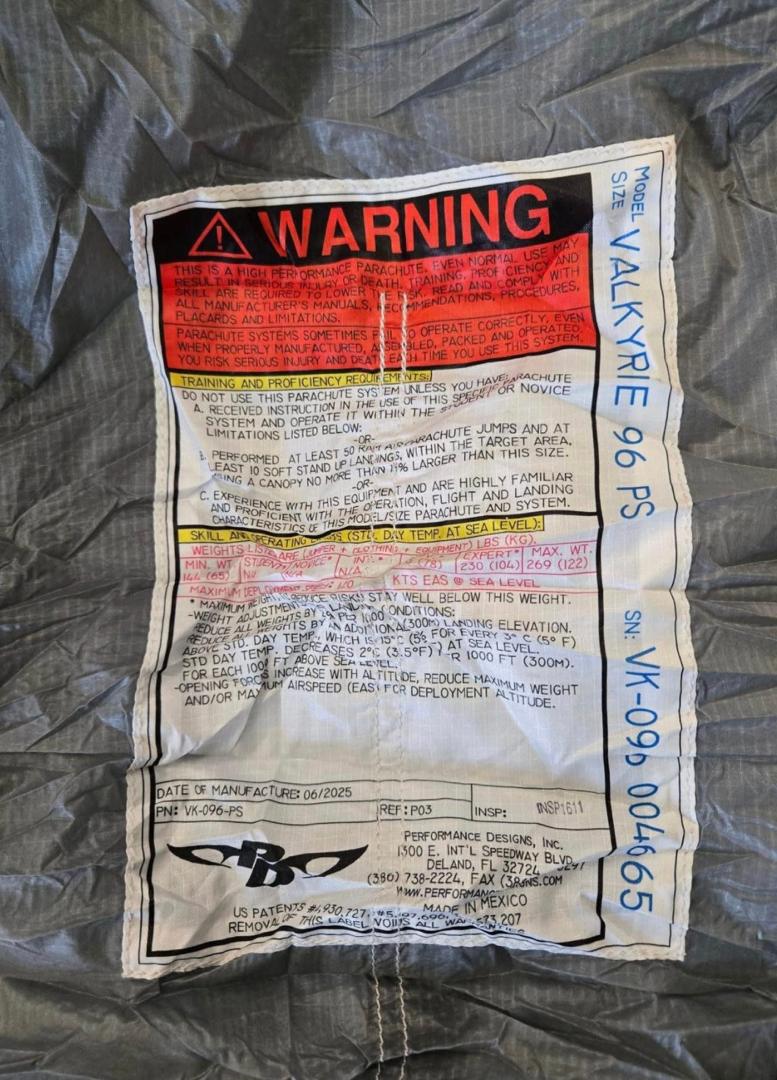 WARNING
THIS IS A HIGH PERFORMANCE PARACHUTE. EVEN NORMAL USE MAY
RESULT IN SERIOUS INJURY OR DEATH. TRAINING, PROFICIENCY AND
SKILL ARE REQUIRED TO LOWER THE RISK. READ AND COMPLY WITH
ALL MANUFACTURER'S MANUALS, RECOMMENDATIONS, PROCEDURES,
PLACARDS AND LIMITATIONS.
PARACHUTE SYSTEMS SOMETIMES FAIL TO OPERATE CORRECTLY, EVEN
WHEN PROPERLY MANUFACTURED, ASSEMBLED, PACKED AND OPERATED.
YOU RISK SERIOUS INJURY AND DEATH EACH TIME YOU USE THIS SYSTEM.
TRAINING AND PROFICIENCY REQUIREMENTS:
DO NOT USE THIS PARACHUTE SYSTEM UNLESS YOU HAVE:
A. RECEIVED INSTRUCTION IN THE USE OF THIS SPECIFIC PARACHUTE
SYSTEM AND OPERATE IT WITHIN THE STUDENT OR NOVICE
LIMITATIONS LISTED BELOW:
-OR-
B. PERFORMED AT LEAST 50 RAM AIR PARACHUTE JUMPS AND AT
LEAST 10 SOFT STAND UP LANDINGS, WITHIN THE TARGET AREA,
USING A CANOPY NO MORE THAN LARGER THAN THIS SIZE.
-OR-
C. EXPERIENCE WITH THIS EQUIPMENT AND ARE HIGHLY FAMILIAR
AND PROFICIENT WITH THE OPERATION, FLIGHT AND LANDING
CHARACTERISTICS OF THIS MODEL/SIZE PARACHUTE AND SYSTEM.
SKILL AND OPERATING (STD. DAY TEMP. AT SEA LEVEL):
WEIGHTS LISTED ARE (JUMPER + CLOTHING + EQUIPMENT) LBS (KG).
MIN. WT. STUDENT NOVICE* EXPERT* MAX. WT.
144 (65) N/A N/A (78) 230 (104) 269 (122)
MAXIMUM DEPLOYMENT SPEED: 120 KTS EAS @ SEA LEVEL
* MAXIMUM WEIGHT. REDUCE RISK! STAY WELL BELOW THIS WEIGHT.
-WEIGHT ADJUSTMENTS LANDING CONDITIONS:
REDUCE ALL WEIGHTS BY PER 1000 (300M) LANDING ELEVATION.
REDUCE ALL WEIGHTS BY AN ADDITIONAL FOR EVERY 3° C (5° F)
ABOVE STD. DAY TEMP. WHICH IS 15° C (59° F) AT SEA LEVEL.
STD DAY TEMP. DECREASES 2°C (3.5°F) PER 1000 FT (300M).
FOR EACH ABOVE SEA LEVEL.
-OPENING FORCES INCREASE WITH ALTITUDE, REDUCE MAXIMUM WEIGHT
AND/OR MAXIMUM AIRSPEED (EAS) FOR DEPLOYMENT ALTITUDE.
DATE OF MANUFACTURE: 06/2025
PN: VK-096-PS REF: P03 INSP: INSP1611
PD
PERFORMANCE DESIGNS, INC.
1300 E. INT'L SPEEDWAY BLVD.
DELAND, FL 32724
(386) 738-2224, FAX
MADE IN MEXICO
US PATENTS #4,930,727,
REMOVAL OF THIS LABEL VOIDS ALL WARRANTIES
MODEL
SIZE VALKYRIE 96 PS
SN: VK-096 004665